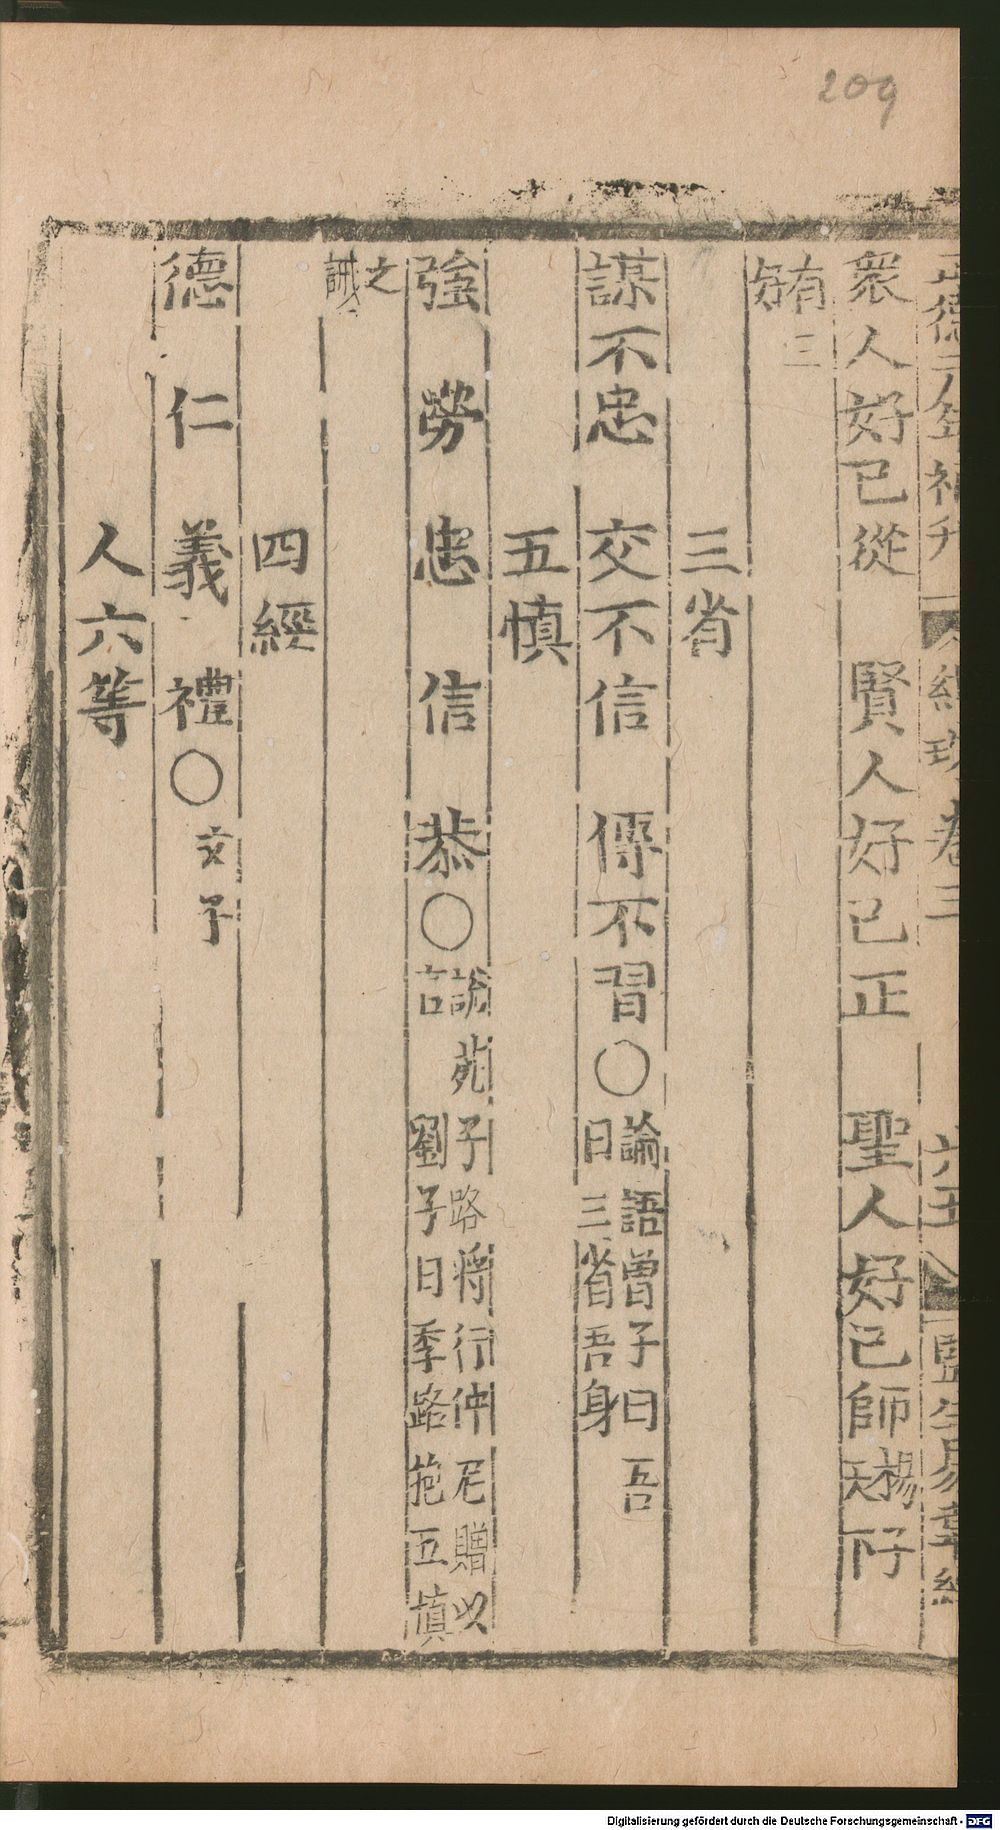 209
衆人好已從　賢人好己正　聖人好己師楊子天下
有三好
三省
謀不忠　交不信　傳不習〇論語曾子曰吾日三省吾身
五慎
強　勞　忠　信　恭〇說苑子路將行仲尼贈以言劉子曰季路抱五慎
之誡
四經
德　仁　義　禮〇文子
人六等
Digitalisierung gefördert durch die Deutsche Forschungsgemeinschaft - DFG